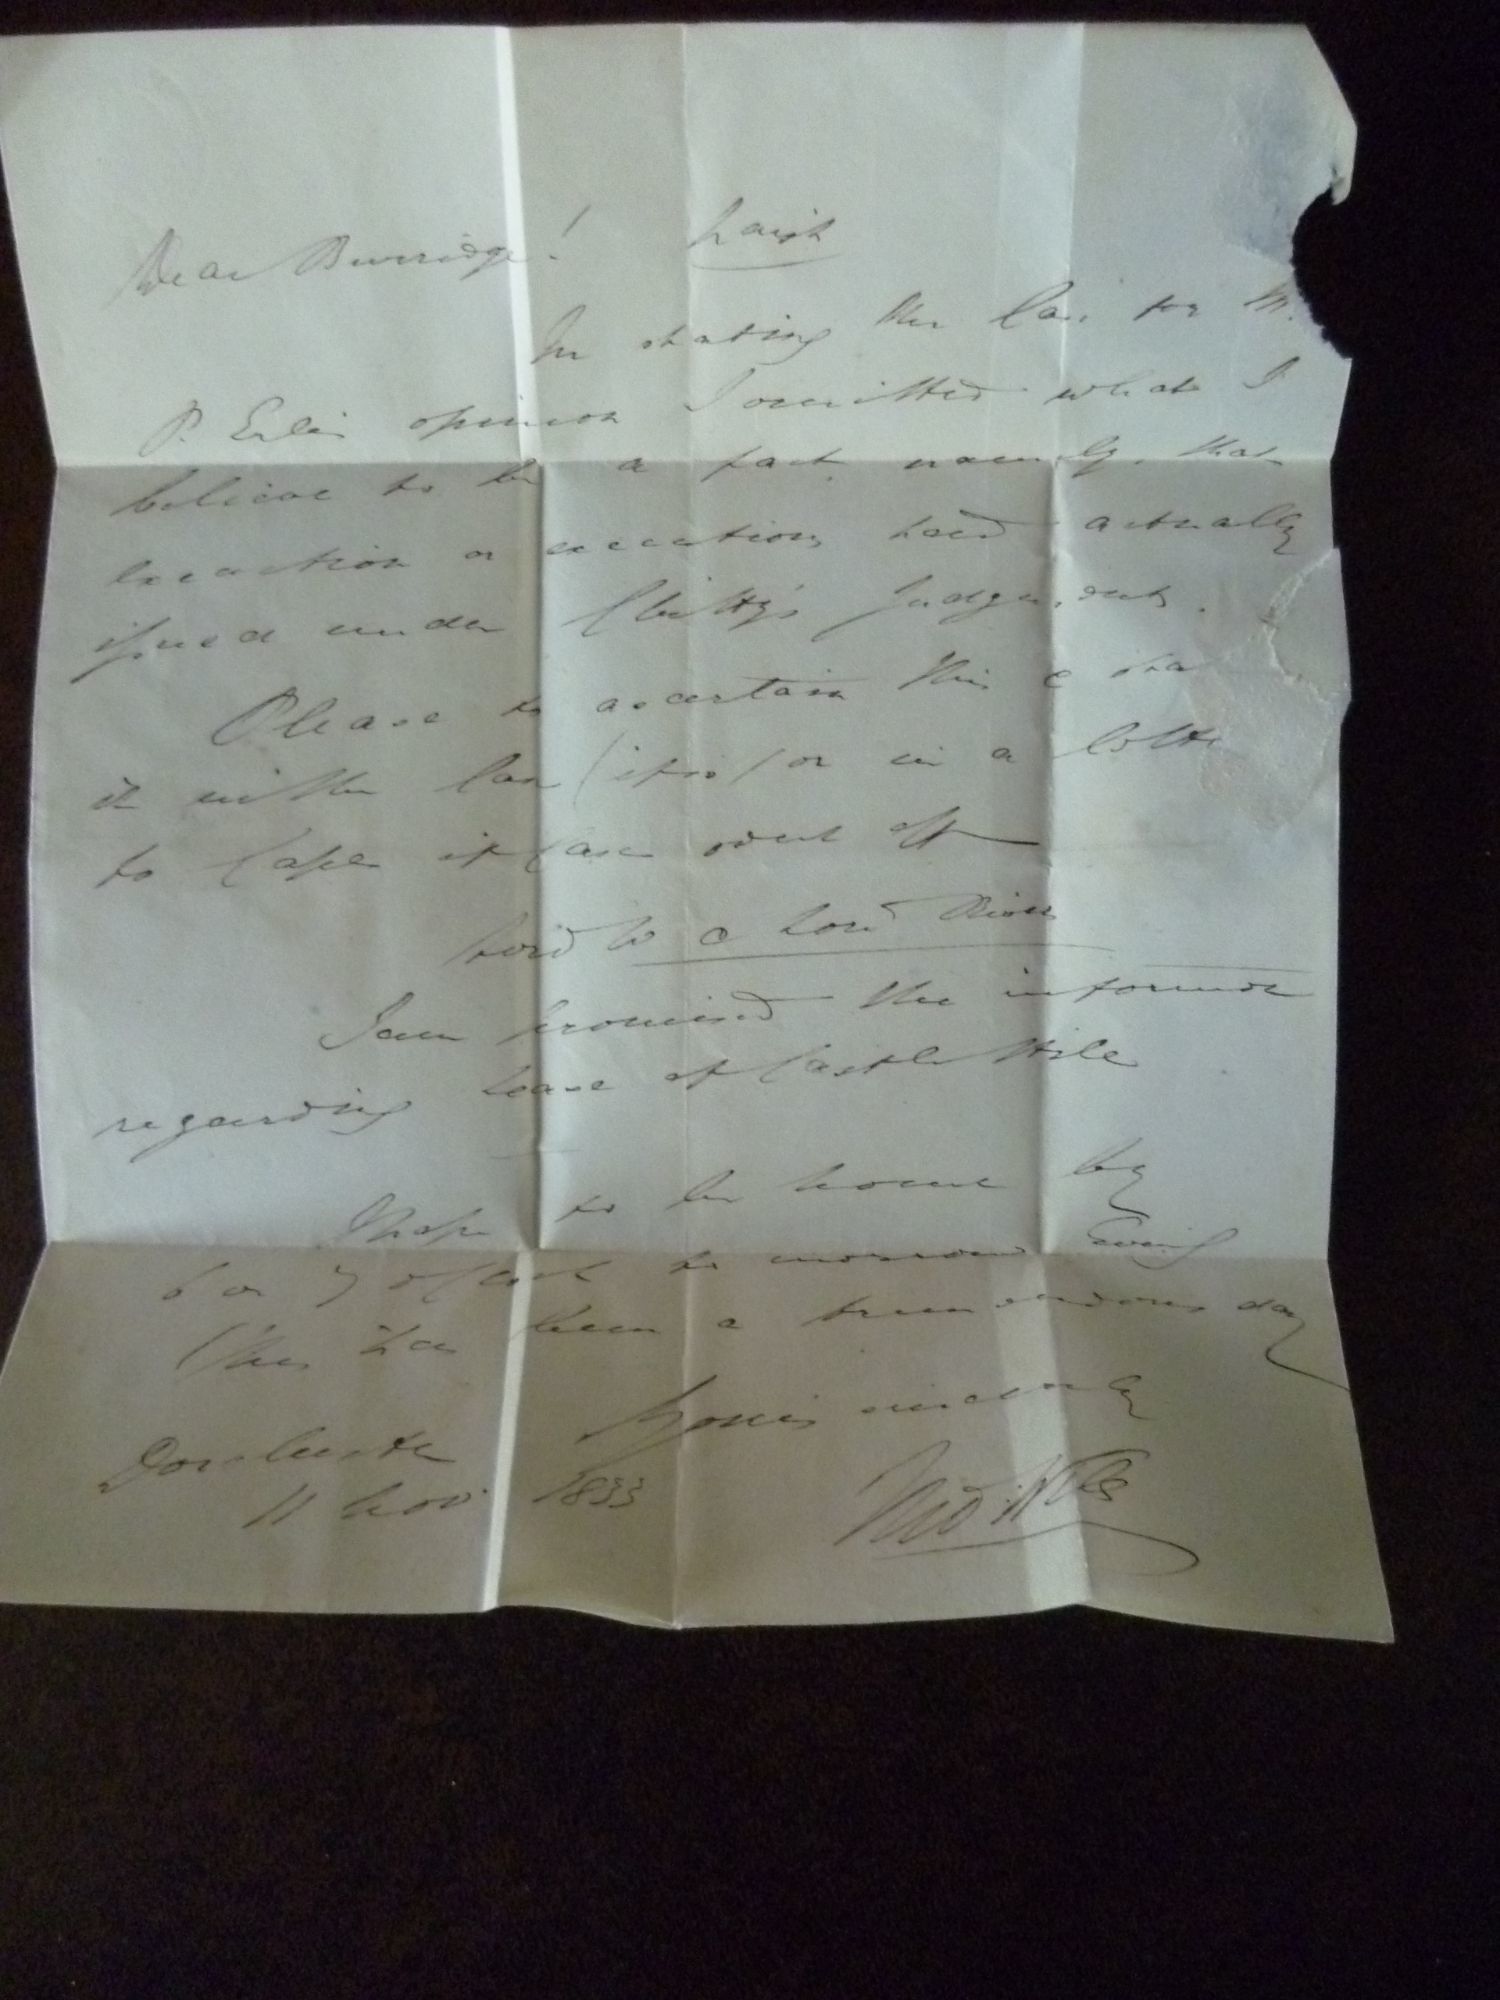 Dear Burridge!
In stating the Case for M.
P. Erle's opinion I omitted what I
believe to be a fact, namely, that
execution or executions had actually
issued under Chitty's Judgment.
Please to ascertain this &
it in the Case (if so) or in a letter
to if Case went off
Lord Rivers
I am promised the
regarding lease of Castle Hile
I hope to be home by
6 or 7 o'Clock to morrow Eveng
This has been a tremendous day
Yours sincerely
Dorchester
11 Nov. 1833